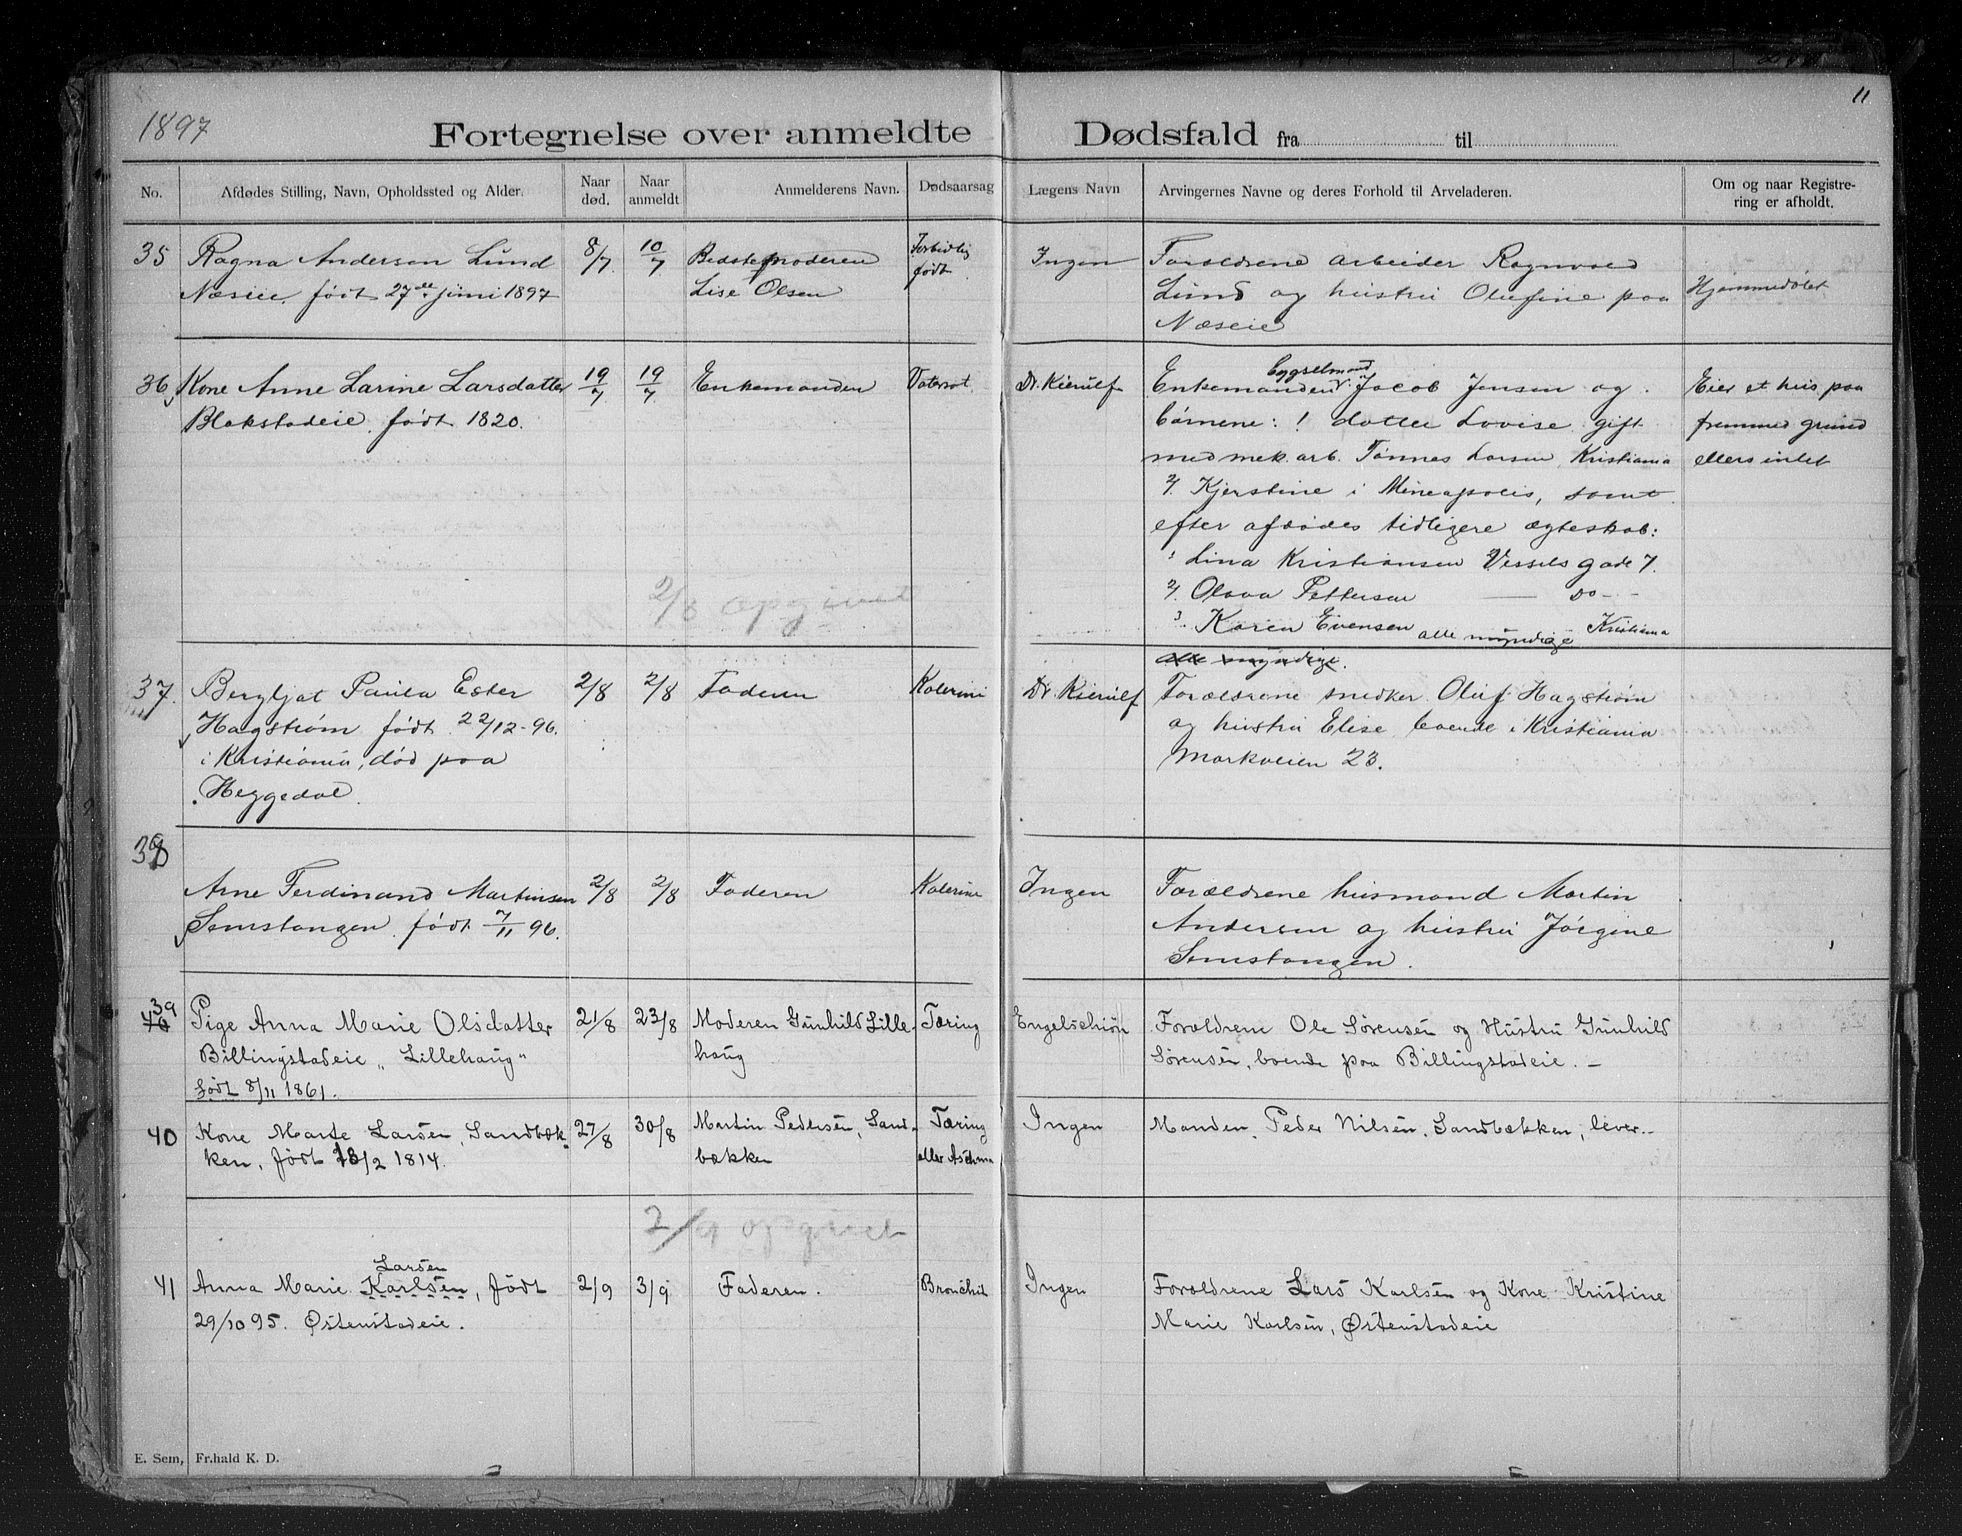 1897
11
Fortegnelse over anmeldte Dødsfald fra til
No.
Afdødes Stilling, Navn, Opholdssted og Alder.
Naar død.
Naar anmeldt
Anmelderens Navn.
Dødsaarsag
Lægens Navn
Arvingernes Navne og deres Forhold til Arveladeren.
Om og naar Registre-
ring er afholdt.
35 Ragna Andersen Lund
Næseie, født 27de juni 1897
8/7
10/7
Bedstemoderen
Lise Olsen
født
Ingen
Forældrene arbeider Ragnvald
Lund og hustru Olufine paa
Næseie
Hjemmedøbt
36 Kone Anne Larine Larsdatter
Blakstadeie, født 1820.
19/7
19/7
Enkemanden
Vatersot
Dr. Kierulf
Bygselmand
Enkemanden Jacob Jensen og
børnene: 1 datter Lovise gift
med mek. arb. Tønnes Larsen, Kristiania
2. Kjerstine i Mineapolis, samt
efter afdødes tidligere ægteskab:
1 Lina Kristiansen Vessels gade 7.
2. Olava Pettersen — Do —
3. Karen Evensen alle myndige Kristiania
alle myndige.
Eier et hus paa
fremmed grund
ellers intet
2/8 opgivet
37. Bergljot Paula Ester
Hagstrøm født 22/12-96.
i Kristiania, død paa
Heggedal.
2/8
2/8
Faderen
Kolerine
Dr. Kierulf
Forældrene snedker Oluf Hagstrøm
og hustru Elise, boende i Kristiania
Markveien 23.
38
Arne Ferdinand Martinsen
Semstangen, født 7/11 96.
2/8
2/8
Faderen
Kolerine
Ingen
Forældrene husmand Martin
Andersen og hustru Jørgine
Semstangen.
39
40
Pige Anna Marie Olsdatter
Billingstadeie „Lillehaug"
født 8/11 1861.
21/8
23/8
Moderen Gunhild Lille-
haug
Tæring
Engelschiøn
Forældrene Ole Sørensen og Hustru Gunhild
Sørensen, boende paa Billingstadeie. —
40 Kone Marte Larsen, Sandbæk-
ken, født 23/2 1814.
27/8
30/8
Martin Pedersen, Sand-
bækken
Tæring
eller Asthma
Ingen
Manden, Peder Nilsen, Sandbækken, lever. —
2/9 opgivet
Larsen
41 Anna Marie Karlsen, født
29/10 95. Østenstadeie.
2/9
3/9
Faderen.
Bronchit
Ingen
Forældrene Lars Karlsen og Kone Kristine
Marie Karlsen, Østenstadeie
E. Sem, Fr.hald K. D.